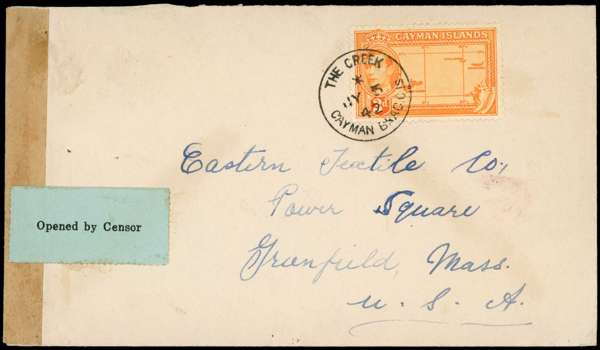 CAYMAN ISLANDS
THE CREEK
*
JY 5
42
CAYMAN BRAC
Opened by Censor
Eastern Textile Co,
Power Square
Greenfield, Mass.
U. S. A.